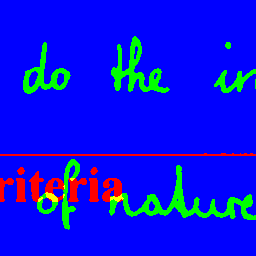 do the in
riteria
of nature